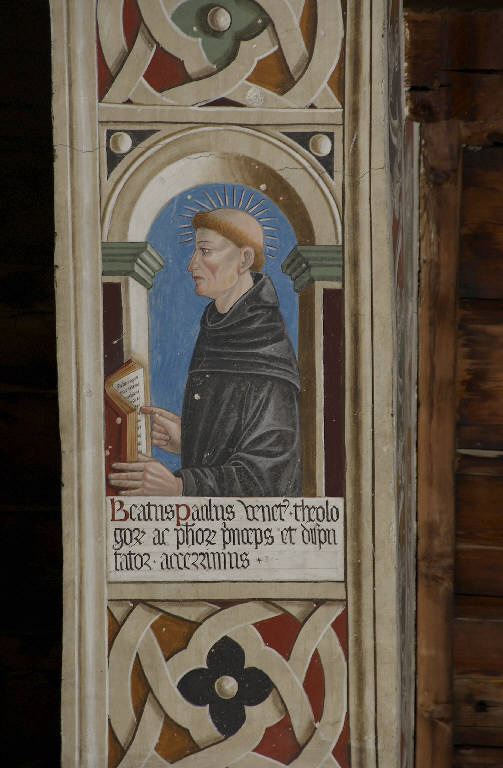 Beatus Paulus venet9 theolo
gor ac phor princeps et dispu
tator acerrimus